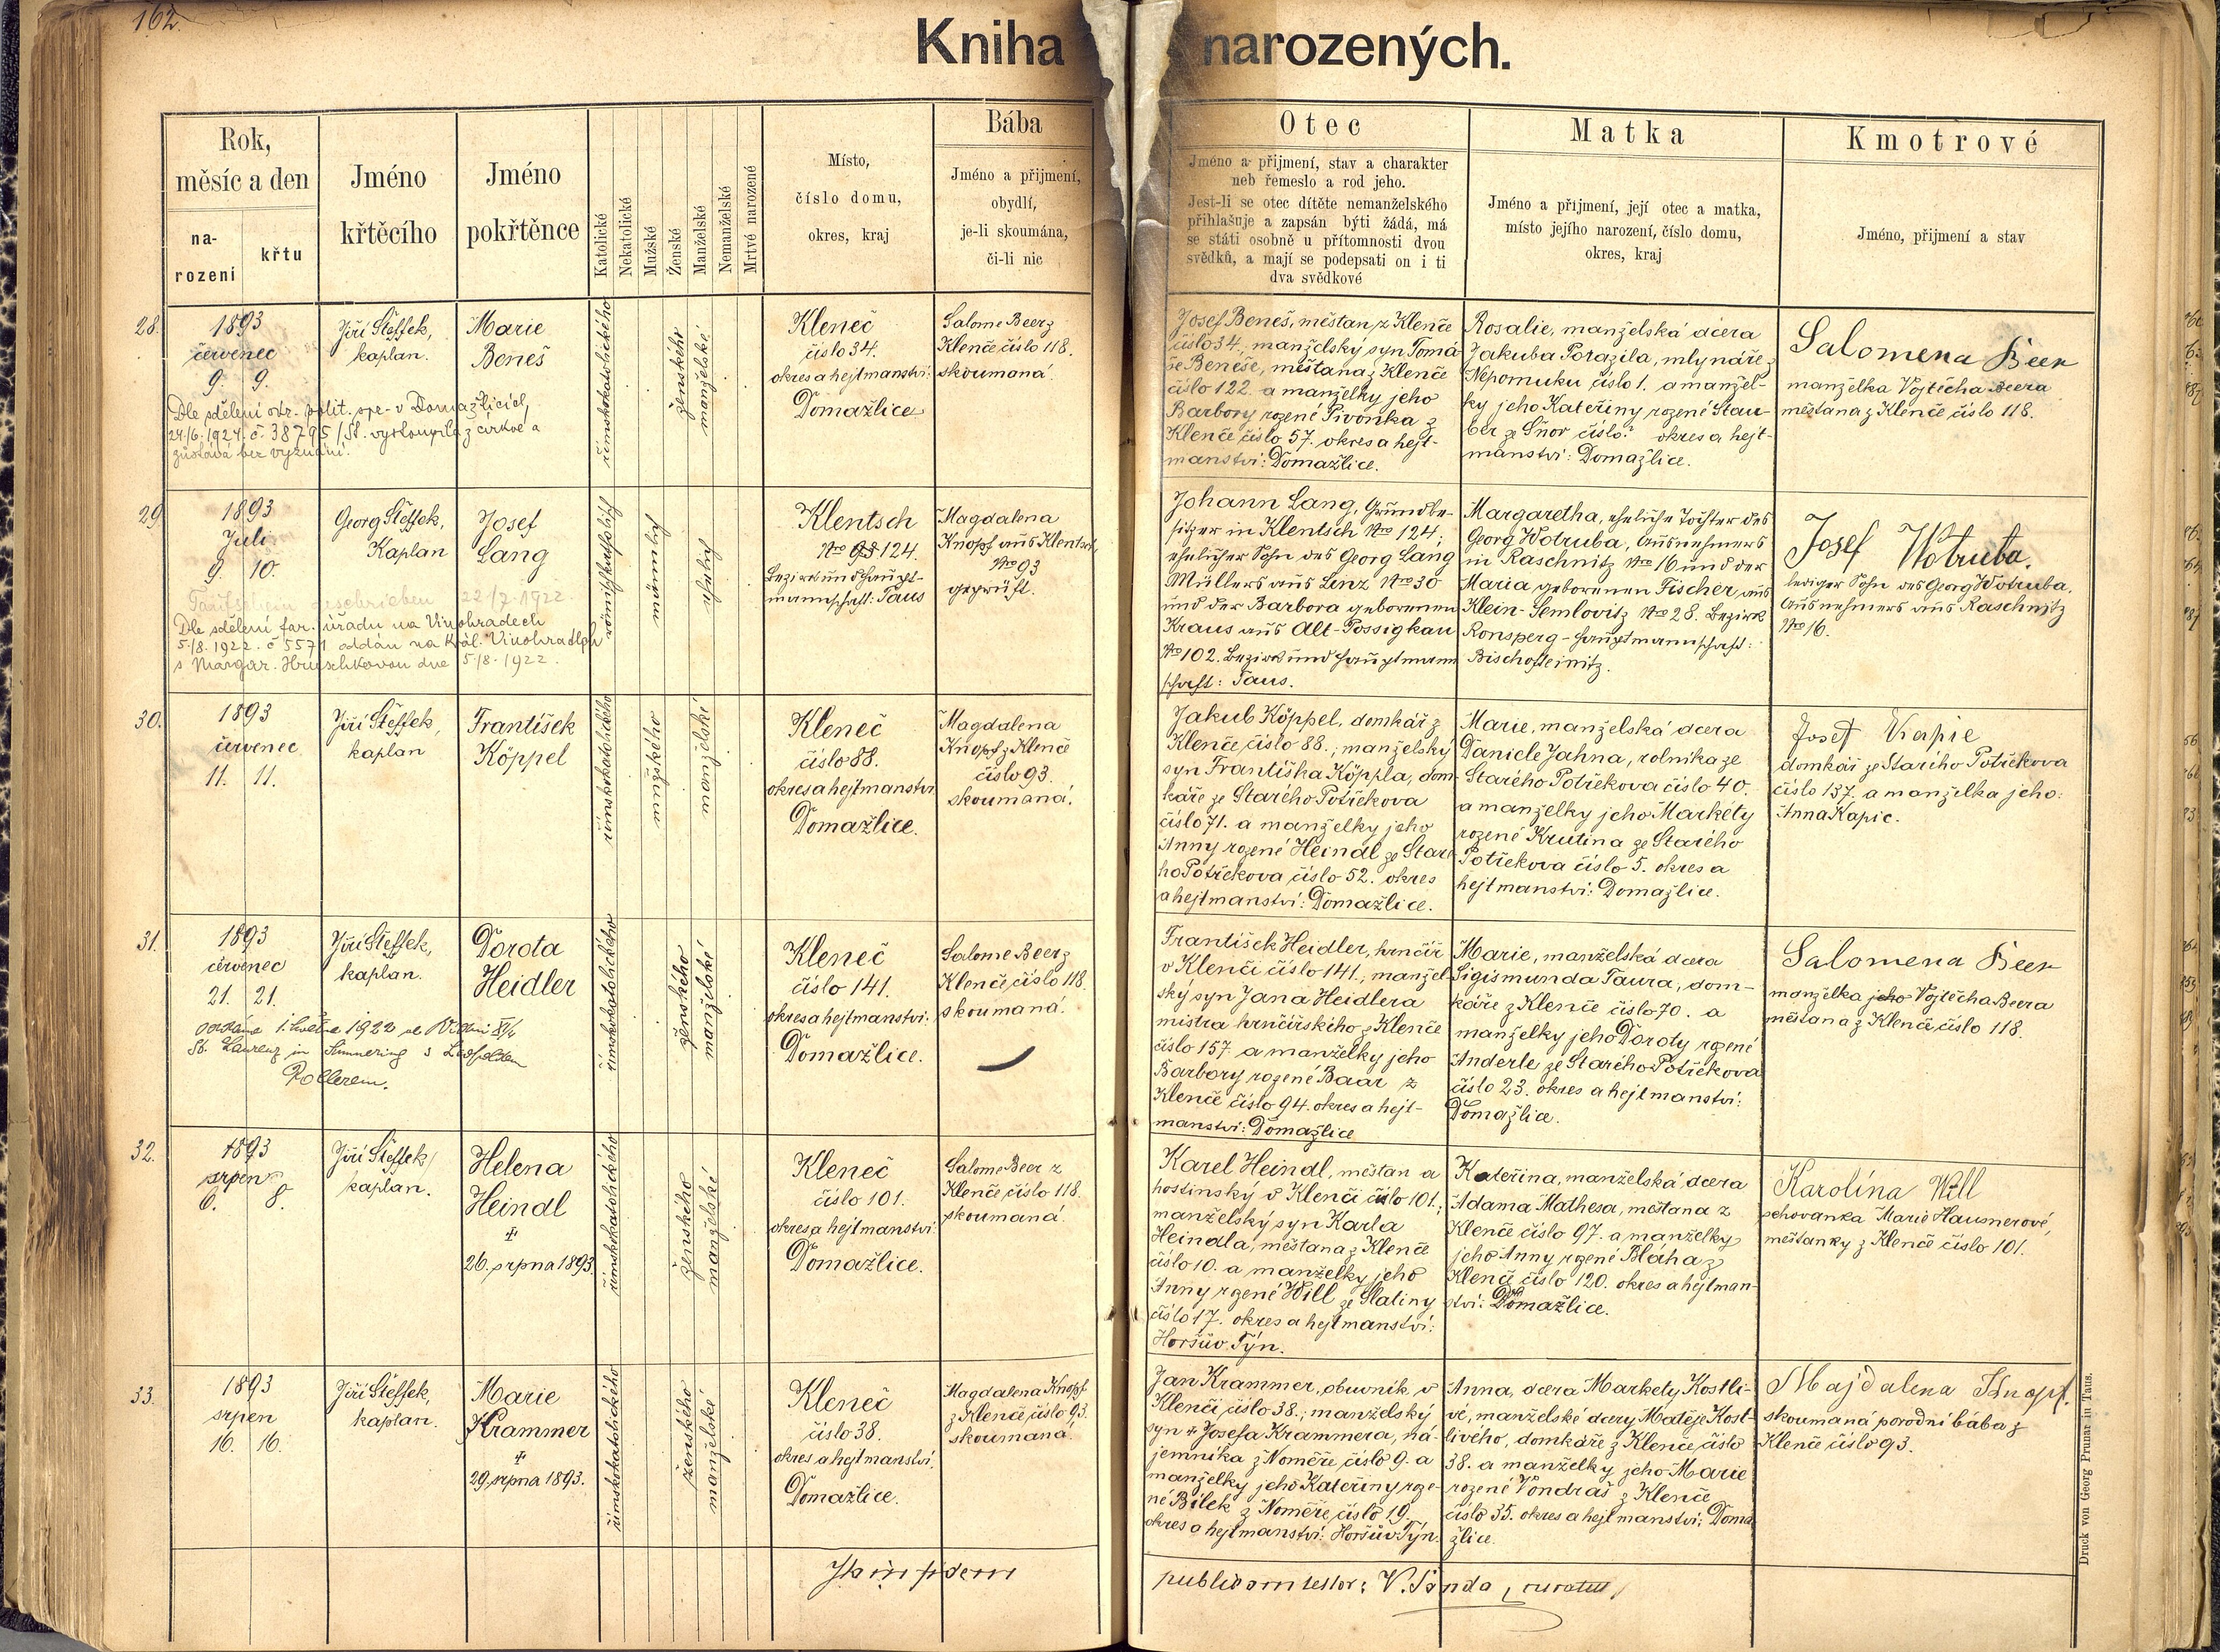 162.
Kniha narozených.
Rok,
měsíc a den
na-
rození
křtu
Jméno
křtěcího
Jméno
pokřtěnce
Katolické
Nekatolické
Mužské
Ženské
Manželské
Nemanželské
Mrtvě narozené
Místo,
číslo domu,
okres, kraj
Bába
Jméno a přijmení,
obydlí,
je-li skoumána,
či-li nic
Otec
Jméno a přijmení, stav a charakter
neb řemeslo a rod jeho.
Jest-li se otec dítěte nemanželského
přihlašuje a zapsán býti žádá, má
se státi osobně u přítomnosti dvou
svědků, a mají se podepsati on i ti
dva svědkové
Matka
Jméno a přijmení, její otec a matka,
místo jejího narození, číslo domu,
okres, kraj
Kmotrové
Jméno, přijmení a stav
28.
1893
červenec
9. 9.
Dle sdělení okr. polit. spr. v Domažlicích,
24/6. 1924. č. 38795/St. vystoupila z církve a
zůstává bez vyznání.
Jiří Šteffek,
kaplan.
Marie
Beneš
římskokatolického
ženského
manželské
Kleneč
číslo 34.
okres a hejtmanství:
Domažlice
Salome Beer z
Klenče číslo 118.
skoumaná.
Josef Beneš, měštan z Klenče
číslo 34., manželský syn Tomá-
še Beneše, měštana z Klenče
číslo 122. a manželky jeho
Barbory rozené Pivonka z
Klenče číslo 57. okres a hejt-
manství: Domažlice.
Rosalie, manželská dcera
Jakuba Porazila, mlynáře z
Nepomuku číslo 1. a manžel-
ky jeho Kateřiny rozené Stau-
ber ze Šnor číslo? okres a hejt-
manství: Domažlice.
Salomena Beer
manželka Vojtěcha Beera
měštana z Klenče číslo 118.
29.
1893
Juli
9. 10.
Taufschein geschrieben 22/7. 1922.
Dle sdělení far. úřadu na Vinohradech
5/8. 1922. č 5571 oddán na Král. Vinohradech
s Margar. Hruschkovou dne 5/8. 1922.
Georg Šteffek,
Kaplan
Josef
Lang
römischkatholisch
männlich
ehelich
Klentsch
Nro 124.
Bezirk und Haupt-
mannschaft: Taus
Magdalena
Knopf aus Klentsch
Nro 93
geprüft.
Johann Lang, Grundbe-
sitzer in Klentsch Nro 124;
ehelicher Sohn des Georg Lang
Müllers aus Linz Nro 30
und der Barbora geborenen
Kraus aus Alt-Possigkau
Nro 102. Bezirk und Hauptmann
schaft: Taus.
Margaretha, eheliche Tochter des
Georg Wotruba, Ausnehmers
in Raschnitz Nro 16 und der
Maria geborenen Fischer aus
Klein-Semlowitz Nro 28. Bezirk
Ronsperg - Hauptmannschaft:
Bischofteinitz.
Josef Wotruba.
lediger Sohn des Georg Wotruba,
Ausnehmers aus Raschnitz
Nro 16.
30.
1893
červenec
11. 11.
Jiří Šteffek,
kaplan
František
Köppel
římskokatolického
mužského
manželské
Kleneč
číslo 88.
okres a hejtmanství
Domažlice.
Magdalena
Knopf z Klenče
číslo 93.
skoumaná.
Jakub Köppel, domkář z
Klenče číslo 88.; manželský
syn Františka Köppla, dom-
káře ze Starého Potřekova
číslo 71. a manželky jeho
Anny rozené Heindl ze Staré
ho Potřekova číslo 52. okres
a hejtmanství: Domažlice.
Marie, manželská dcera
Daniele Jahna, rolníka ze
Starého Potřekova číslo 40.
a manželky jeho Markéty
rozené Krutina ze Starého
Potřekova číslo 5. okres a
hejtmanství: Domažlice.
Josef Kapic
domkář ze Starého Potřekova
číslo 137. a manželka jeho:
Anna Kapic.
31.
1893
červenec
21. 21.
oddána 1. května 1922 ve Vídni XI/1
St. Laurenz in Simmering s Leopoldem
Rollerem.
Jiří Šteffek,
kaplan.
Dorota
Heidler
římskokatolického
ženského
manželské
Kleneč
číslo 141.
okres a hejtmanství:
Domažlice.
Salome Beer z
Klenče číslo 118.
skoumaná.
František Heidler, hrnčíř
v Klenči číslo 141., manžel-
ský syn Jana Heidlera
mistra hrnčířského z Klenče
číslo 157 a manželky jeho
Barbory rozené Baar z
Klenče číslo 94. okres a hejt-
manství: Domažlice
Marie, manželská dcera
Sigismunda Taura, dom-
káře z Klenče číslo 70. a
manželky jeho Doroty rozené
Anderle ze Starého Potřekova
číslo 23. okres a hejtmanství:
Domažlice.
Salomena Beer
manželka jeho Vojtěcha Beera
měštana z Klenče číslo 118.
32.
1893
srpen
6. 8.
Jiří Šteffek,
kaplan.
Helena
Heindl
26. srpna 1893.
římskokatolického
ženského
manželské
Kleneč
číslo 101.
okres a hejtmanství:
Domažlice.
Salome Beer z
Klenče číslo 118.
skoumaná.
Karel Heindl, měštan a
hostinský v Klenči číslo 101.;
manželský syn Karla
Heindla, měštana z Klenče
číslo 10. a manželky jeho
Anny rozené Will ze Slatiny
číslo 17. okres a hejtmanství:
Horšův Týn.
Kateřina, manželská dcera
Adama Mathesa, měštana z
Klenče číslo 97. a manželky
jeho Anny rozené Bláha z
Klenče číslo 120. okres a hejtman-
ství: Domažlice.
Karolína Will
schovanka Marie Hausnerové,
měštanky z Klenče číslo 101.
33.
1893
srpen
16. 16.
Jiří Šteffek,
kaplan.
Marie
Krammer
29. srpna 1893.
římskokatolického
ženského
manželské
Kleneč
číslo 38.
okres a hejtmanství.
Domažlice.
Magdalena Knopf
z Klenče číslo 93.
skoumaná.
Jan Krammer, obuvník v
Klenči číslo 38.; manželský
syn Josefa Krammera, ná-
jemníka z Noměře číslo 9. a
manželky jeho Kateřiny roze-
né Bílek z Noměře číslo 19.
okres a hejtmanství: Horšův Týn.
Anna, dcera Markety Kostli-
vé, manželské dcery Matěje Kost-
livého, domkáře z Klenče číslo
38. a manželky jeho Marie
rozené Vondraš z Klenče
číslo 35. okres a hejtmanství: Doma
žlice.
Majdalena Knopf.
skoumaná porodní bába z
Klenče číslo 93.
In fidem
publicam testor: V. Šanda, curatus
Druck von Georg Prunar in Taus.